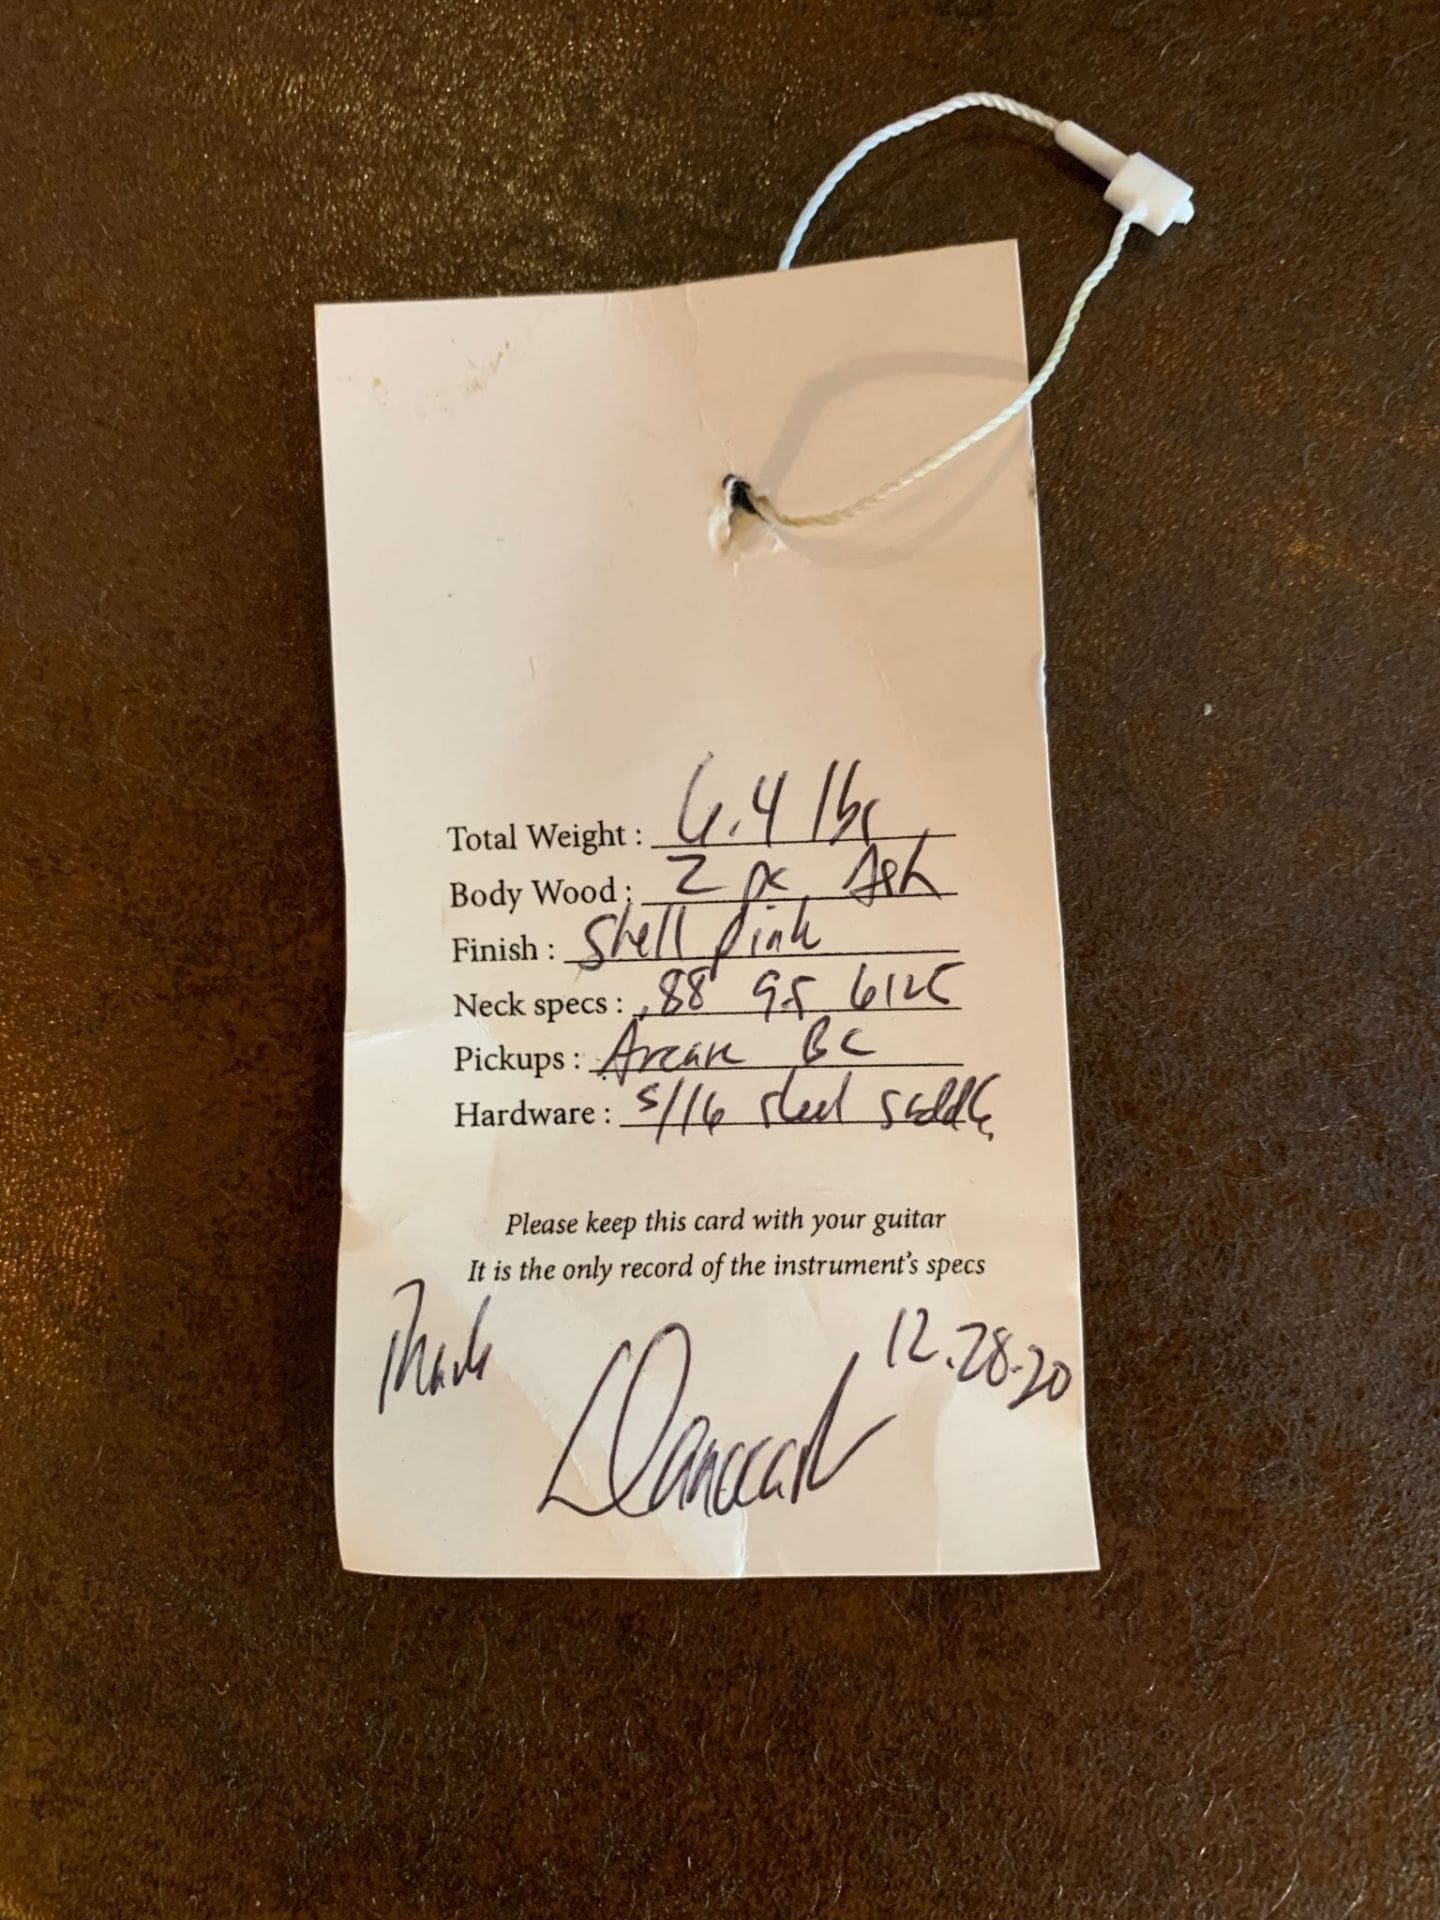 Total Weight : 6.4 lbs
Body Wood : 2 pc Ash
Finish : Shell pink
Neck specs : .88 9.5 6125
Pickups : Arcane BC
Hardware : 5/16 steel saddles
Please keep this card with your guitar
It is the only record of the instrument's specs
Thanks
12.28.20